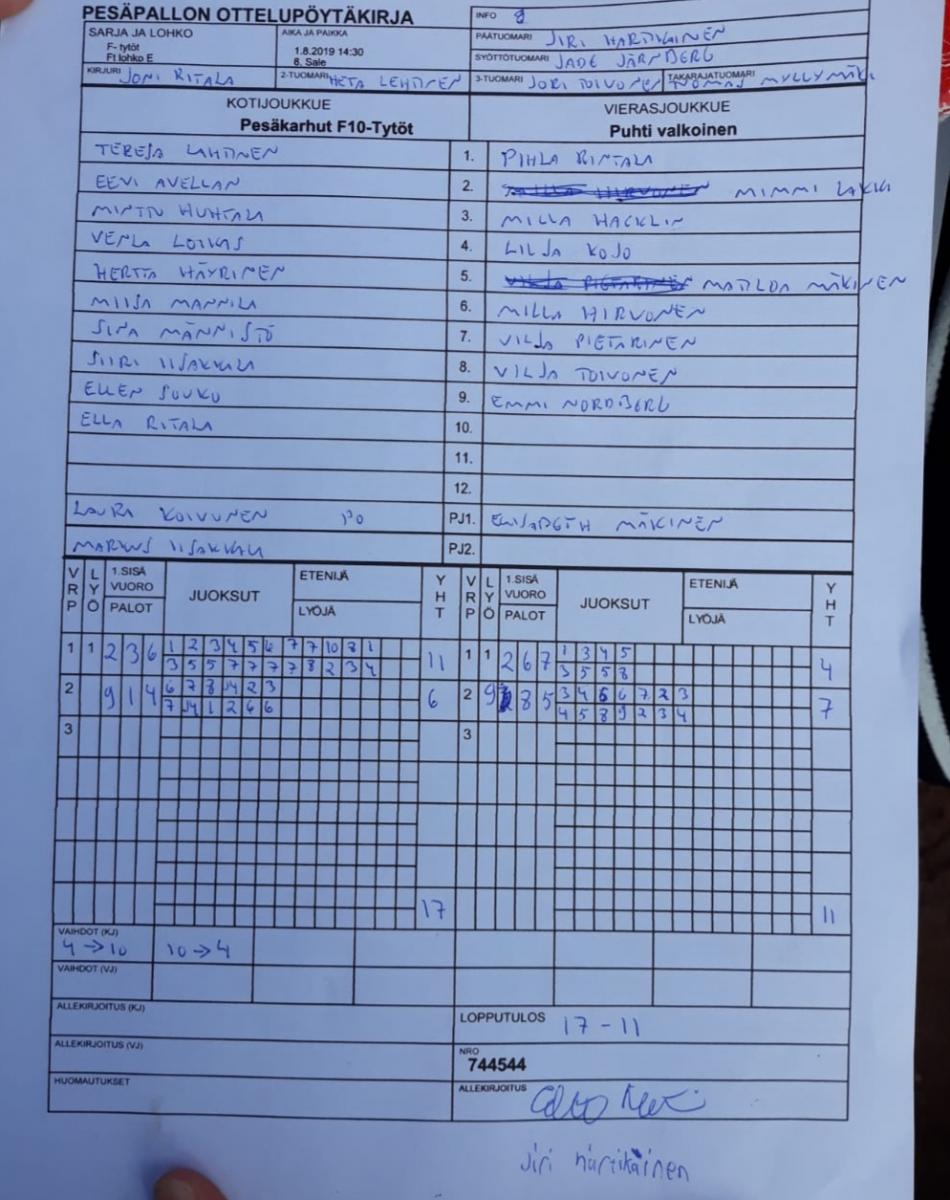 PESÄPALLON OTTELUPÖYTÄKIRJA
INFO 8
SARJA JA LOHKO
F- tytöt
Ft lohko E
AIKA JA PAIKKA
1.8.2019 14:30
8. Sale
PÄÄTUOMARI JIRI HARTIKAINEN
SYÖTTÖTUOMARI JADE JÄRNBERG
KIRJURI JONI RITALA 2-TUOMARI HETA LEHTINEN 3-TUOMARI JORI TOIVONEN TAKARAJATUOMARI TUOMAS MYLLYMÄKI
KOTIJOUKKUE VIERASJOUKKUE
Pesäkarhut F10-Tytöt Puhti valkoinen
TEREJA LAHTINEN 1. PIHLA RINTALA
EEVI AVELLAN 2. MILLA HIRVONEN MIMMI LAKKI
MINTTU HUHTALA 3. MILLA HACKLIN
VENLA LOIKAS 4. LILJA KOJO
HERTTA HÄYRINEN 5. VILJA PIETARINEN MATILDA MÄKINEN
MIISA MANNILA 6. MILLA HIRVONEN
SINA MÄNNISTÖ 7. VILJA PIETARINEN
SIIRI IISAKKALA 8. VILJA TOIVONEN
ELLEN SOUKO 9. EMMI NORDBERG
ELLA RITALA 10.
11.
12.
LAURA KOIVUNEN PO PJ1. ELISABETH MÄKINEN
MARKUS IISAKKALA PJ2.
VRP LYÖ 1.SISÄ VUORO PALOT JUOKSUT ETENIJÄ LYÖJÄ YHT VRP LYÖ 1.SISÄ VUORO PALOT JUOKSUT ETENIJÄ LYÖJÄ YHT
1 1 2 3 6 1 2 3 4 5 6 7 7 10 8 1 11 1 1 2 6 7 1 3 4 5 4
3 5 5 7 7 7 7 8 2 3 4 3 5 5 8
2 9 1 4 6 7 8 J4 2 3 6 2 9 8 5 3 4 5 6 7 2 3 7
7 J4 1 2 6 6 4 5 8 9 2 3 4
3 3
17 11
VAIHDOT (KJ)
4 → 10 10 → 4
VAIHDOT (VJ)
ALLEKIRJOITUS (KJ) LOPPUTULOS 17 - 11
ALLEKIRJOITUS (VJ) NRO
744544
HUOMAUTUKSET ALLEKIRJOITUS
Jiri hartikainen